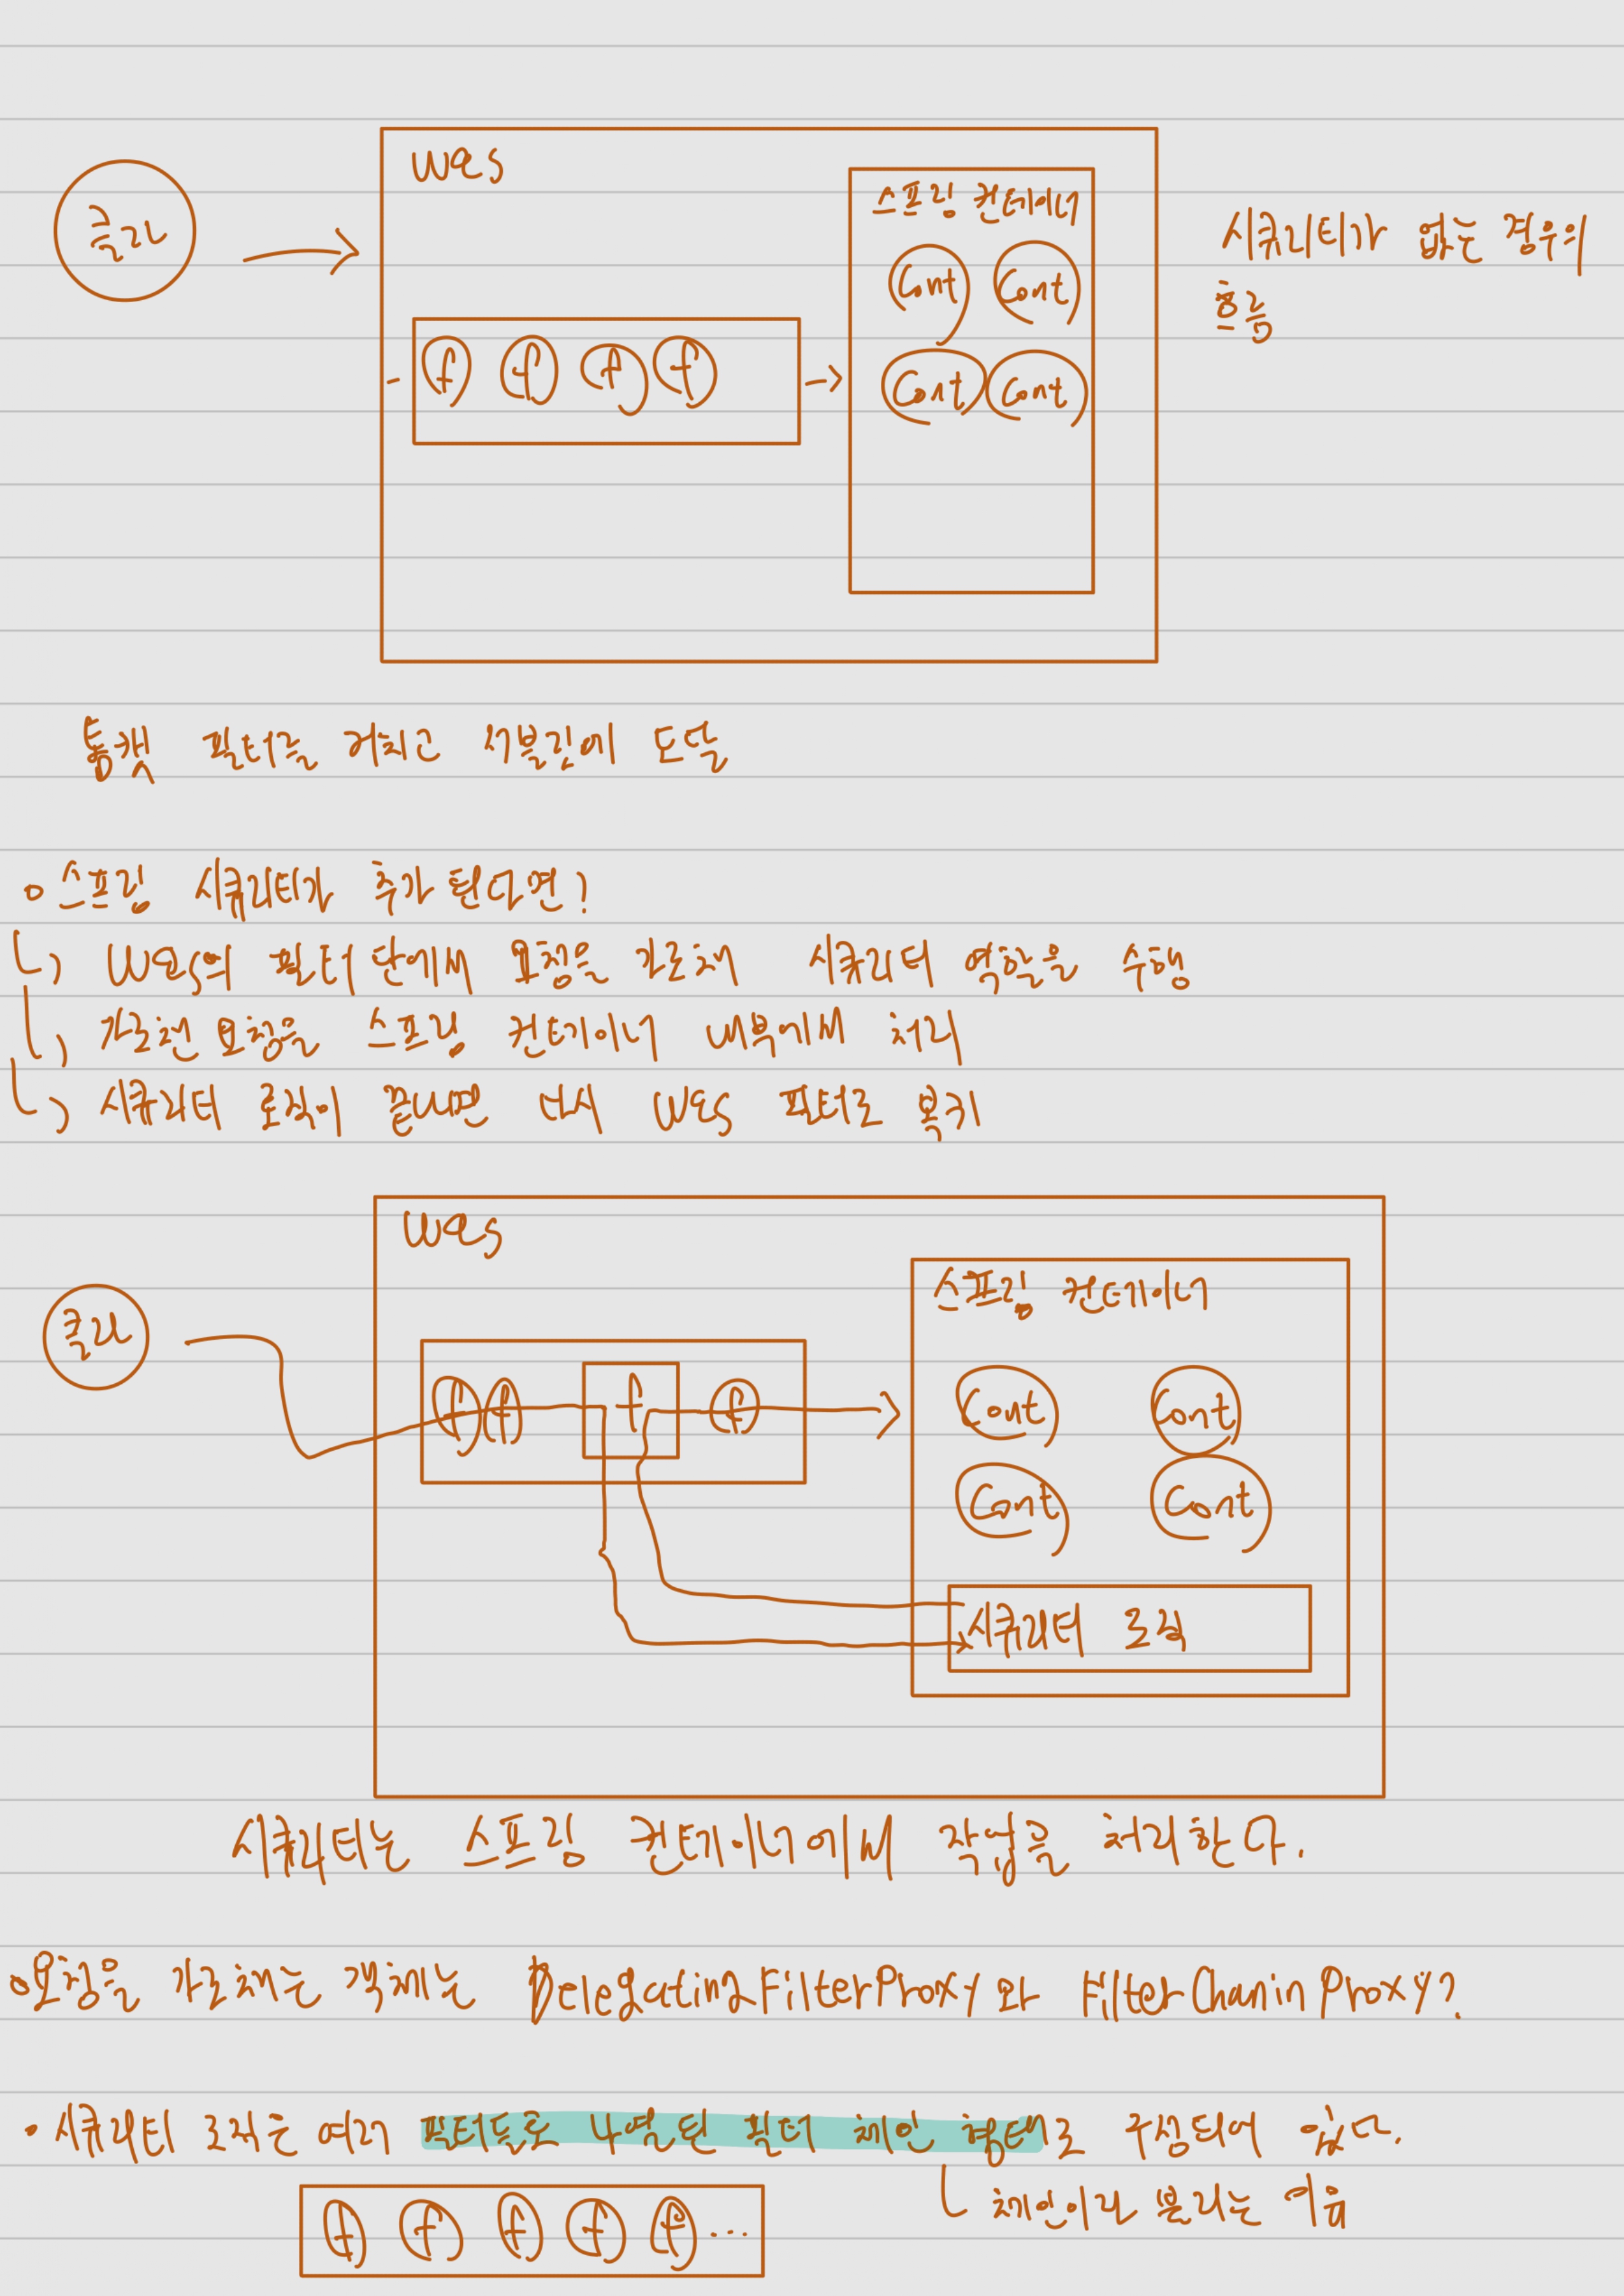 was
스프링 컨테이너
클라
시큐리티가 없는 경우의
흐름
Cont Cont
f f f f
Cont Cont
톰캣 필터를 거친 서블릿에 도달
스프링 시큐리티가 추가 된다면?
was의 필터 단에서 요청을 가로채 시큐리티 역할을 수행
가로챈 요청은 스프링 컨테이너 내부에서 처리
시큐리티 로직이 끝나면 다시 was 필터로 복귀
was
스프링 컨테이너
클라
f f f f
Cont Cont
Cont Cont
시큐리티 로직
시큐리티는 스프링 컨테이너에서 작업을 처리한다.
요청을 가로채는 객체는 DelegatingFilterProxy와 FilterChainProxy?
시큐리티 로직은 여러 필터들로 나열된 필터 체인 형태로 구성되어 있다.
체인이라 불리는 이유
f f f f f ...